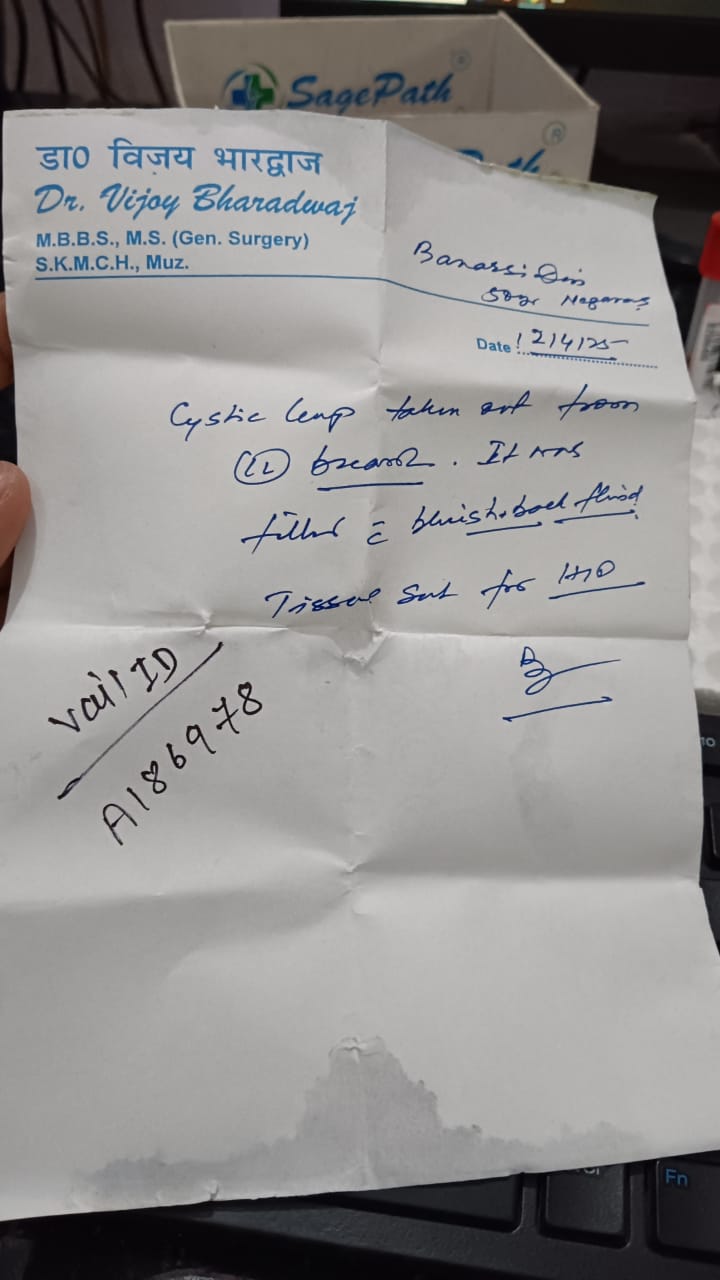 SagePath
डा० विजय भारद्वाज
Dr. Vijoy Bharadwaj
M.B.B.S., M.S. (Gen. Surgery)
S.K.M.C.H., Muz.
Banarsi
Date 12/4/25
Cystic lump taken out from
(L) breast. It was
filled c̄ bluish black fluid.
Tissue sent for
Vail ID
A186978
Fn